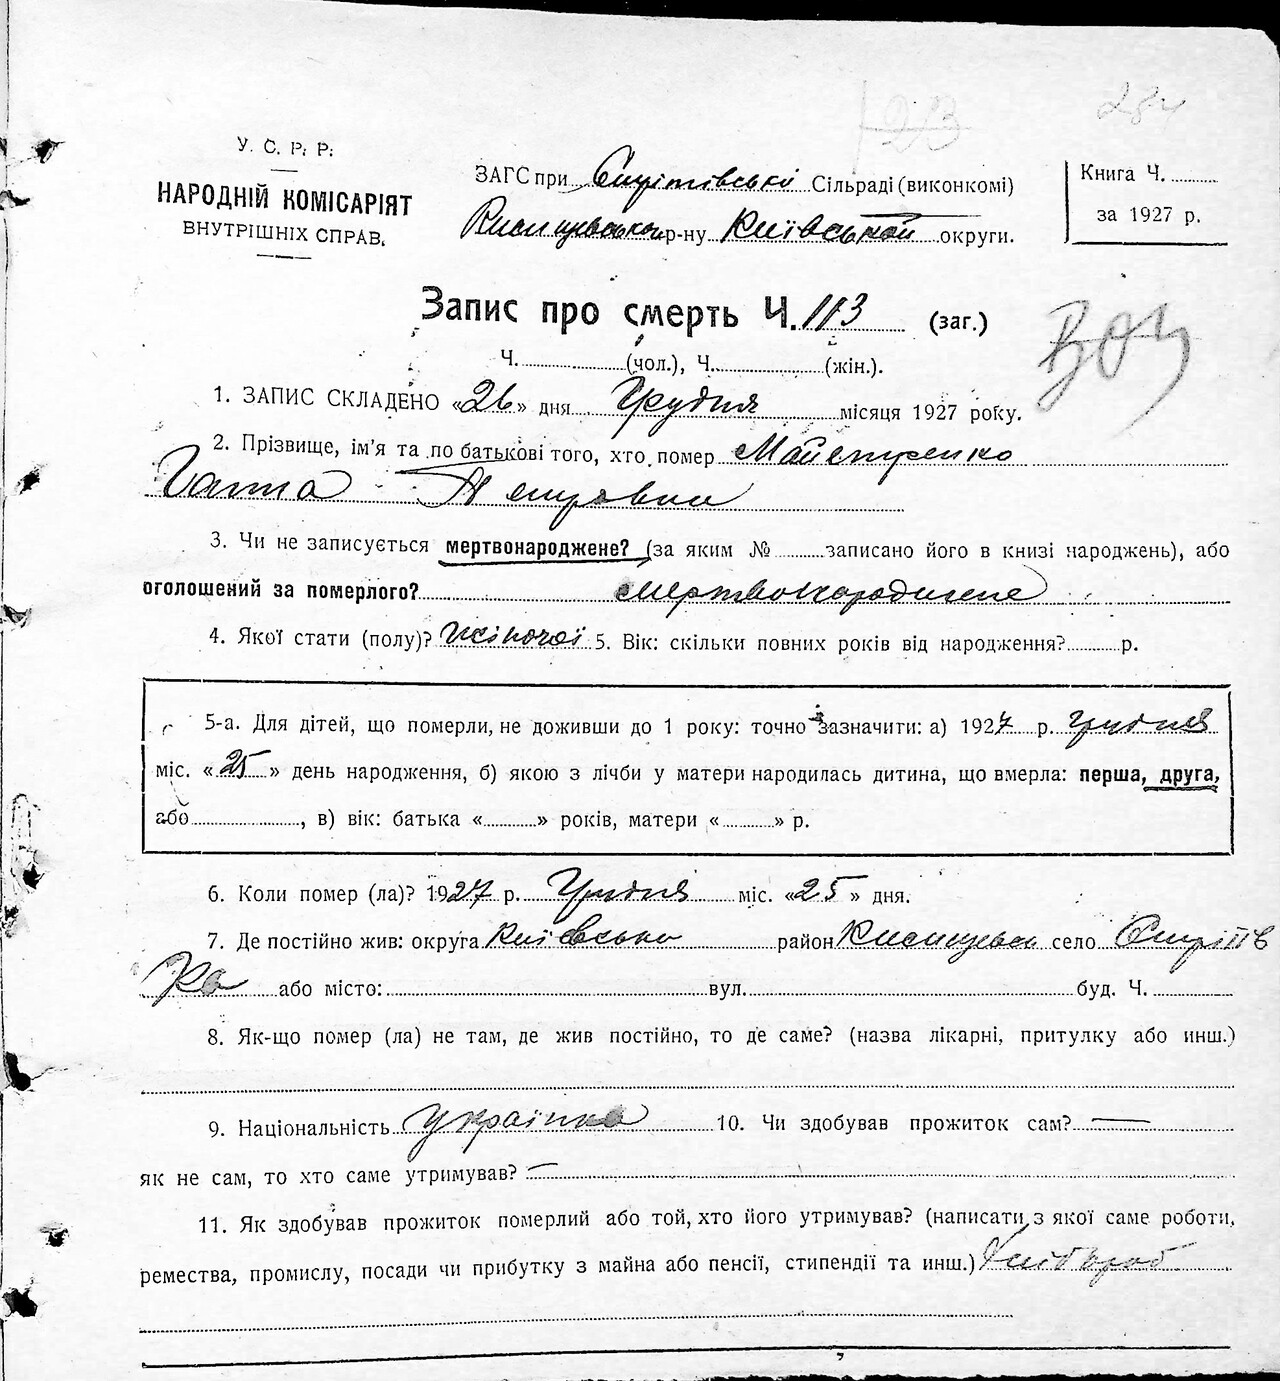 284
У. С. Р. Р.
НАРОДНІЙ КОМІСАРІЯТ
ВНУТРІШНІХ СПРАВ.
ЗАГС при Сирітській Сільраді (виконкомі)
р-ну Київської округи.
Книга Ч.
за 1927 р.
Запис про смерть Ч. 113 (заг.)
Ч. (чол.), Ч. (жін.).
1. ЗАПИС СКЛАДЕНО «26» дня Грудня місяця 1927 року.
2. Прізвище, ім'я та по батькові того, хто помер Майстренко
Ганна Петровна
3. Чи не записується мертвонароджене? (за яким № записано його в книзі народжень), або
оголошений за померлого? мертвонароджене
4. Якої стати (полу)? жіночої 5. Вік: скільки повних років від народження? р.
5-а. Для дітей, що померли, не доживши до 1 року: точно зазначити: а) 1927 р. грудня
міс. «25» день народження, б) якою з лічби у матери народилась дитина, що вмерла: перша, друга,
або , в) вік: батька « » років, матери « » р.
6. Коли помер (ла)? 1927 р. Грудня міс. «25» дня.
7. Де постійно жив: округа Київська район село
або місто: вул. буд. Ч.
8. Як-що помер (ла) не там, де жив постійно, то де саме? (назва лікарні, притулку або инш.)
9. Національність українка 10. Чи здобував прожиток сам? —
як не сам, то хто саме утримував? —
11. Як здобував прожиток померлий або той, хто його утримував? (написати з якої саме роботи,
ремества, промислу, посади чи прибутку з майна або пенсії, стипендії та инш.) Хлібороб